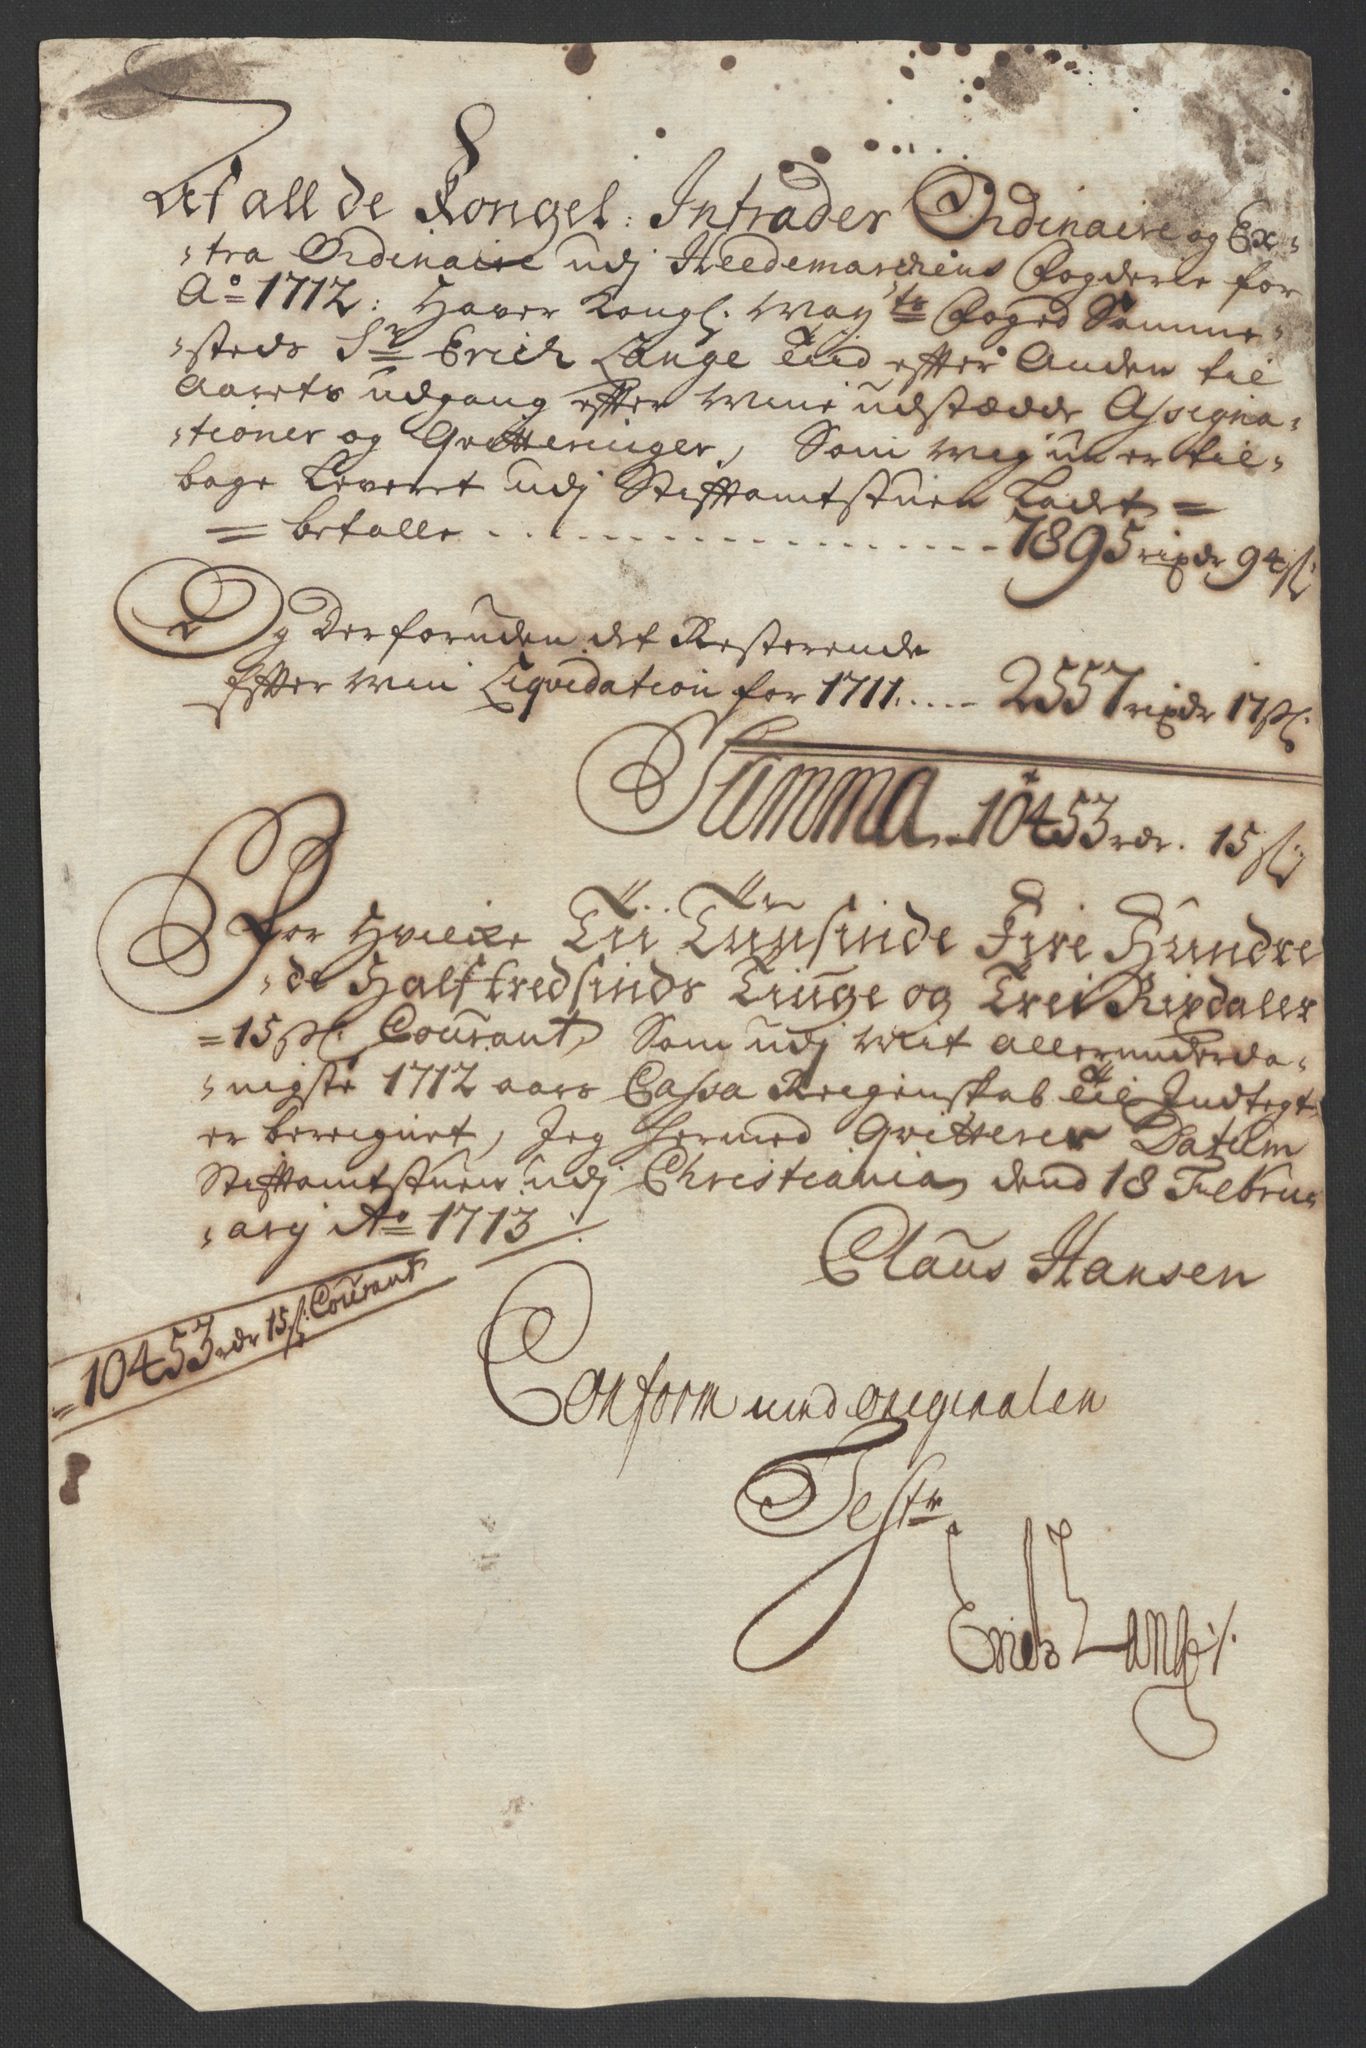 Af all de Kongel: Intrader Ordinaire og Ex-
-tra Ordinaire udj Heedemarchens Fogderie for
Ao 1712: Haver Kongl. May:ts Foged Samme-
-steds Sr Erich Lange Tiid efter Anden til
Aarets udgang efter mine udstædde Assigna-
-tioner og Qvitteringer, Som mig nu er til-
bage Leveret udj Stiftamtstuen Ladet =
= betalle . . . . . . . . . . 7895 rixdr 94 s:
Og Derforuden det Resterende
Efter min Liqvidation for 1711 . . . . . 2557 rixdr 17 s:
Summa 10453 rdr. 15 s
For Hvilke Tii Tüusinde Fire Hundre
-de Halftredsinds Tiuge og Trei Rixdaler
= 15 s: Courant, Som udj mit allerunderda-
-nigste 1712 aars Cassa Reigenskab til Indtegt
er bereignet, Jeg hermed Qvitterer Datum
Stiftamtstuen udj Christiania dend 18 Febru-
-arij Ao 1713
Claus Hansen
= 10453 rdr 15 s: Courant
Conform med originalen
Testr
Erich Lange